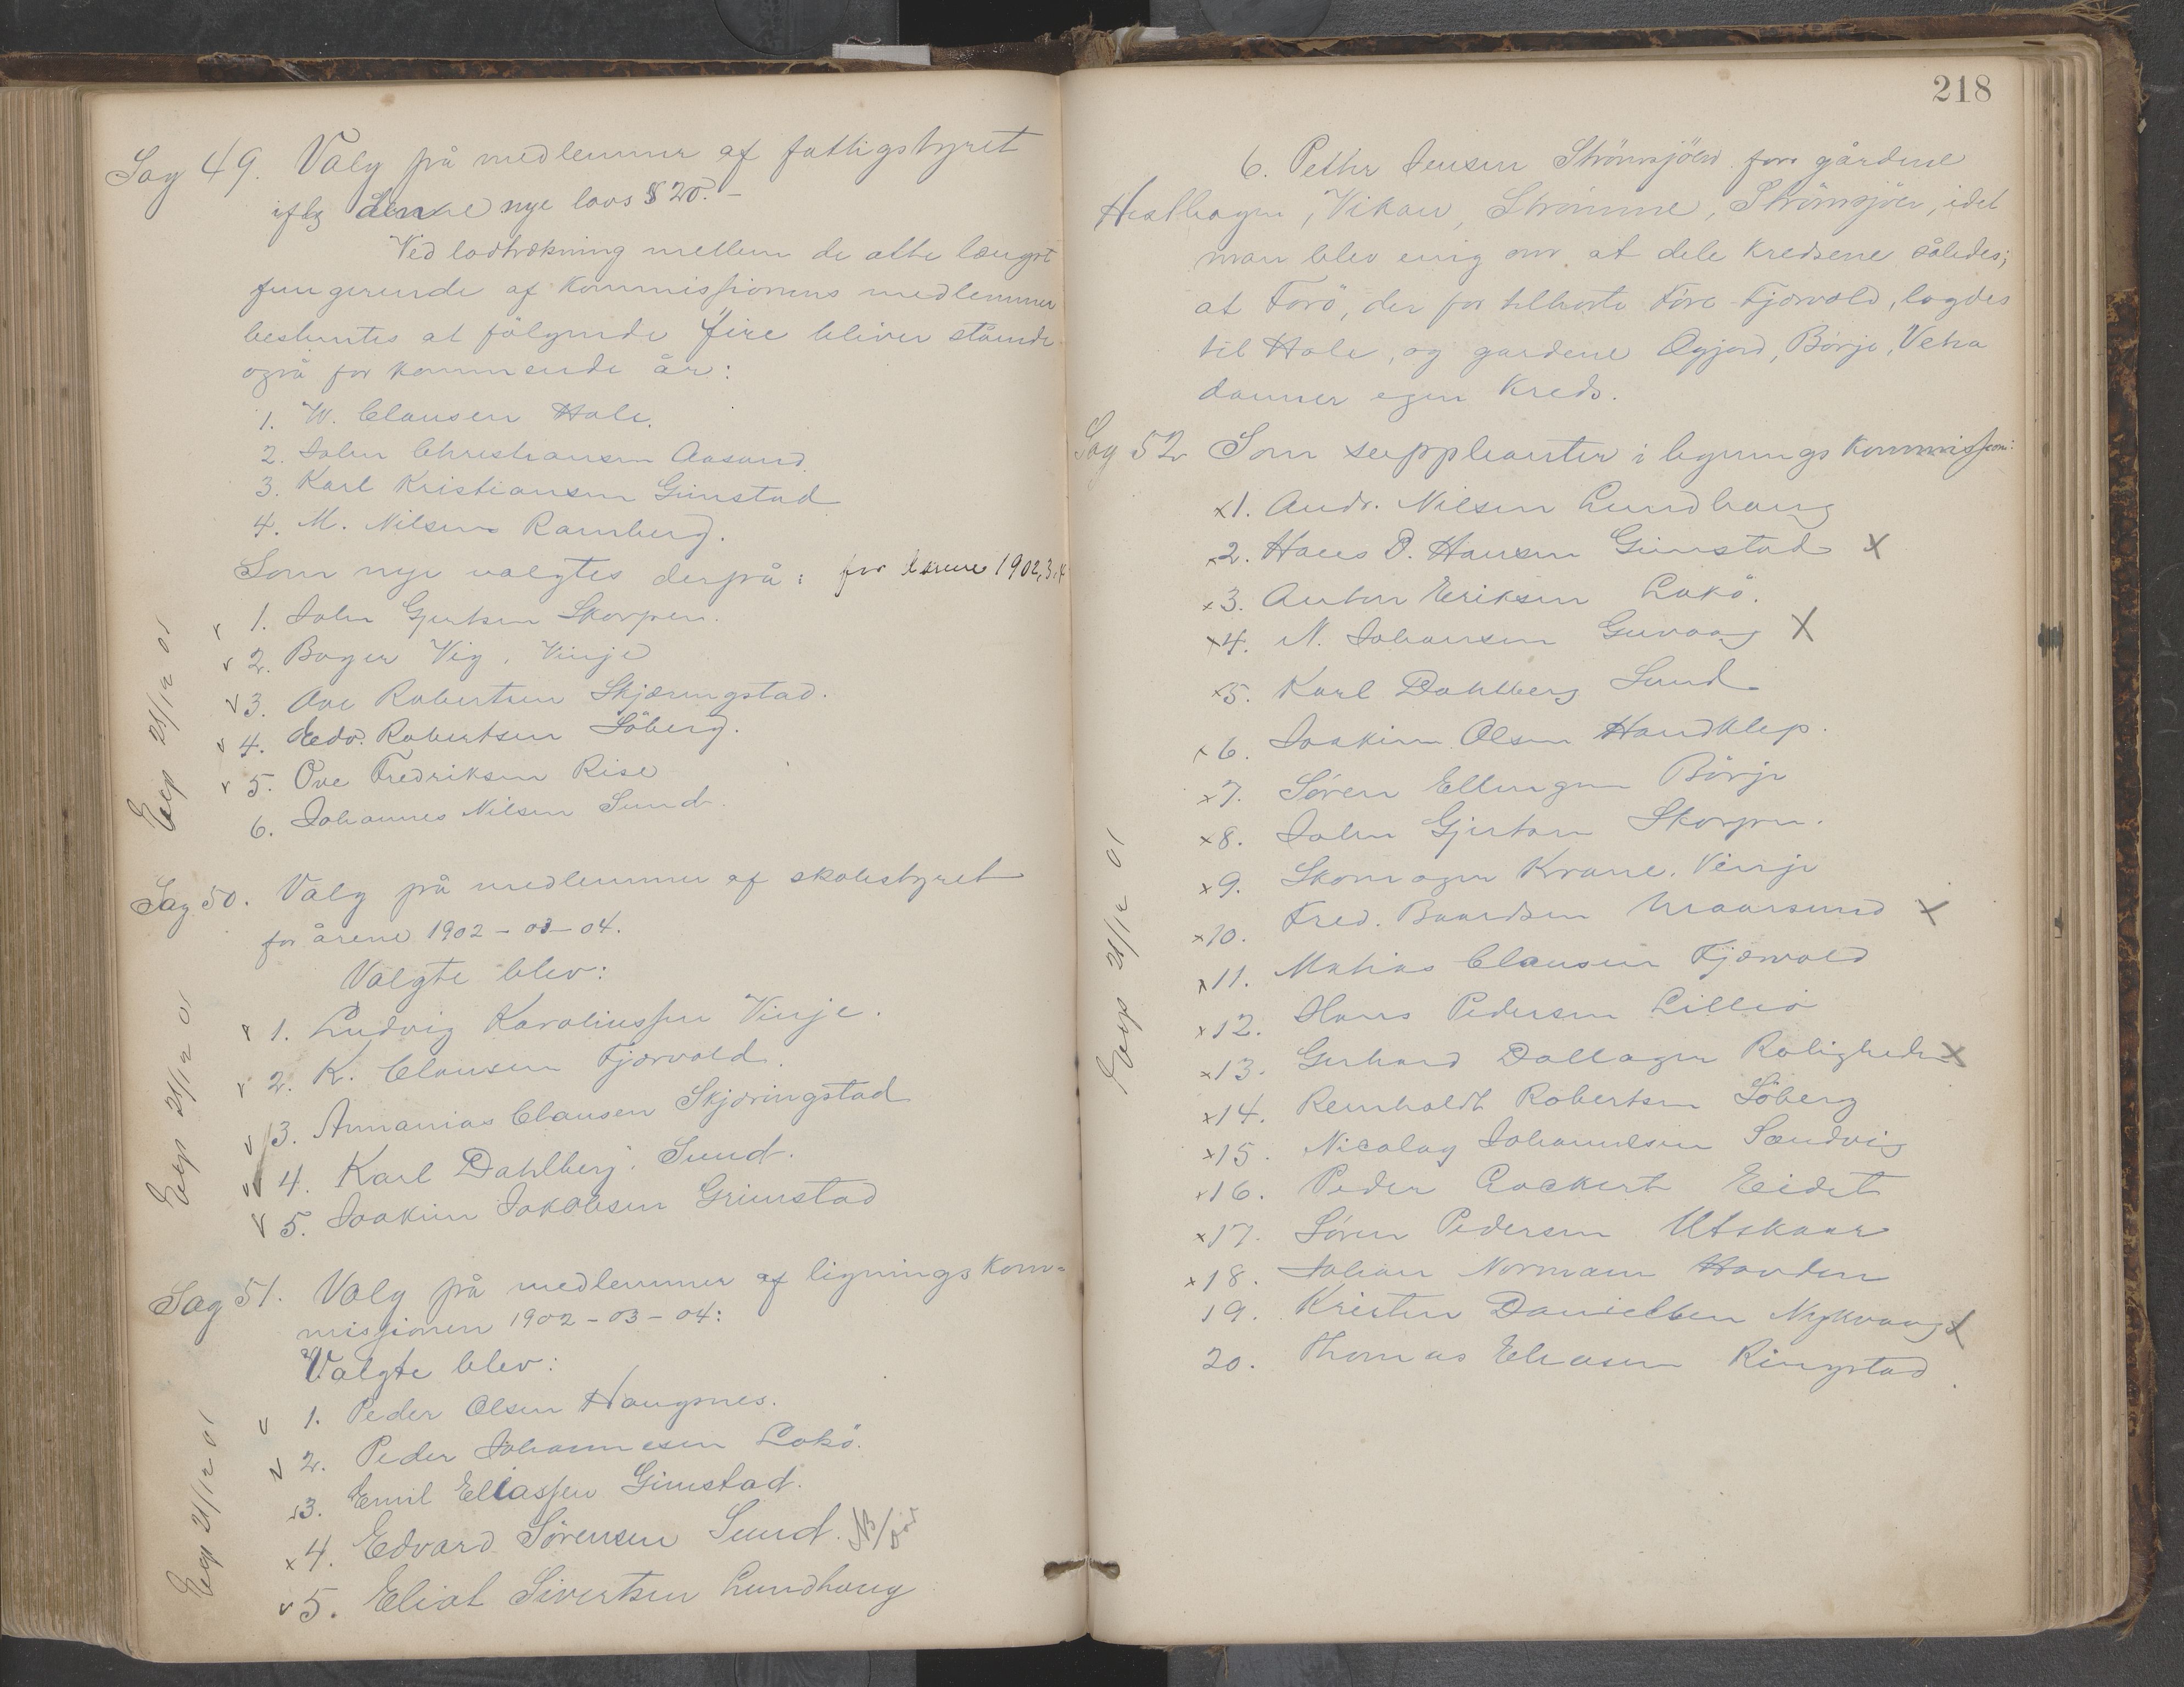 Sag 49. Valg på medlemmer af fattigstyret
iflg denne nye lovs § 20. -
Ved lodtrækning mellem de otte længst
fungerende af kommissionens medlemmer
bestemtes at følgende fire bliver stående
også for kommende år:
1. W. Clausen Hole.
2. John Christiansen Aasand.
3. Karl Kristiansen Gimstad
4. M. Nilsen Ramberg.
Som nye valgtes derpå: for årene 1902, 3, 4
1. John Gjertsen Skorpen.
2. Bager Vig, Vinje
3. Ove Robertsen Skjæringstad.
4. Edv. Robertsen Söberg.
5. Ove Fredriksen Rise
6. Johannes Nilsen Sund
Exp 21/12 01
Sag 50. Valg på medlemmer af skolestyret
for årene 1902 - 03 - 04.
Valgte blev:
1. Ludvig Karoliussen Vinje.
2. K. Clausen Fjærvold.
3. Annanias Clausen Skjæringstad
4. Karl Dahlberg, Sund.
5. Joakim Jakobsen Grimstad
Exp 21/12 01
Sag 51. Valg på medlemmer af lignings kom-
missionen 1902 - 03 - 04:
Valgte blev:
1. Peder Olsen Haugsnes.
2. Peder Johannesen Lokö.
3. Emil Eliassen Gimstad.
4. Edvard Sörensen Sund. NB/Död
5. Eliot Sivertsen Lundhaug
Exp 21/12 01
218
6. Petter Jensen Strömsjöen for gårdene
Hesthagen, Vikan, Strömme, Strömsjöen, idet
man blev enig om at dele kredsene således;
at Forö, der för tilhørte Føre-Fjærvold, lagdes
til Hole, og gardene Øgjord, Börje, Vetra
danner egen kreds.
Sag 52 Som suppleanter i lignings kommission:
x1. Andr. Nilsen Lundhaug
x2. Hans D. Hansen Gimstad x
x3. Anton Eriksen Lokö.
x4. N. Johansen Guvaag x
x5. Karl Dahlberg Sund
x6. Joakim Olsen Handklep.
x7. Søren Ellingsen Börje
x8. John Gjertsen Skorpen.
x9. Skomager Krane, Vinje
x10. Fred. Baardsen Maarsund x
x11. Mathias Clausen Fjærvold
x12. Hans Pedersen Lilleö
x13. Gerhard Dallager Roligheden x
x14. Reinholdt Robertsen Söberg
x15. Nicolay Johannesen Sandvig
x16. Peder Lockert Eidet
x17. Sören Pedersen Utskaar
x18. Johan Normann Hovden
19. Kristen Danielsen Nykvaag x
20. Thomas Eliasen Ringstad
Exp 21/12 01